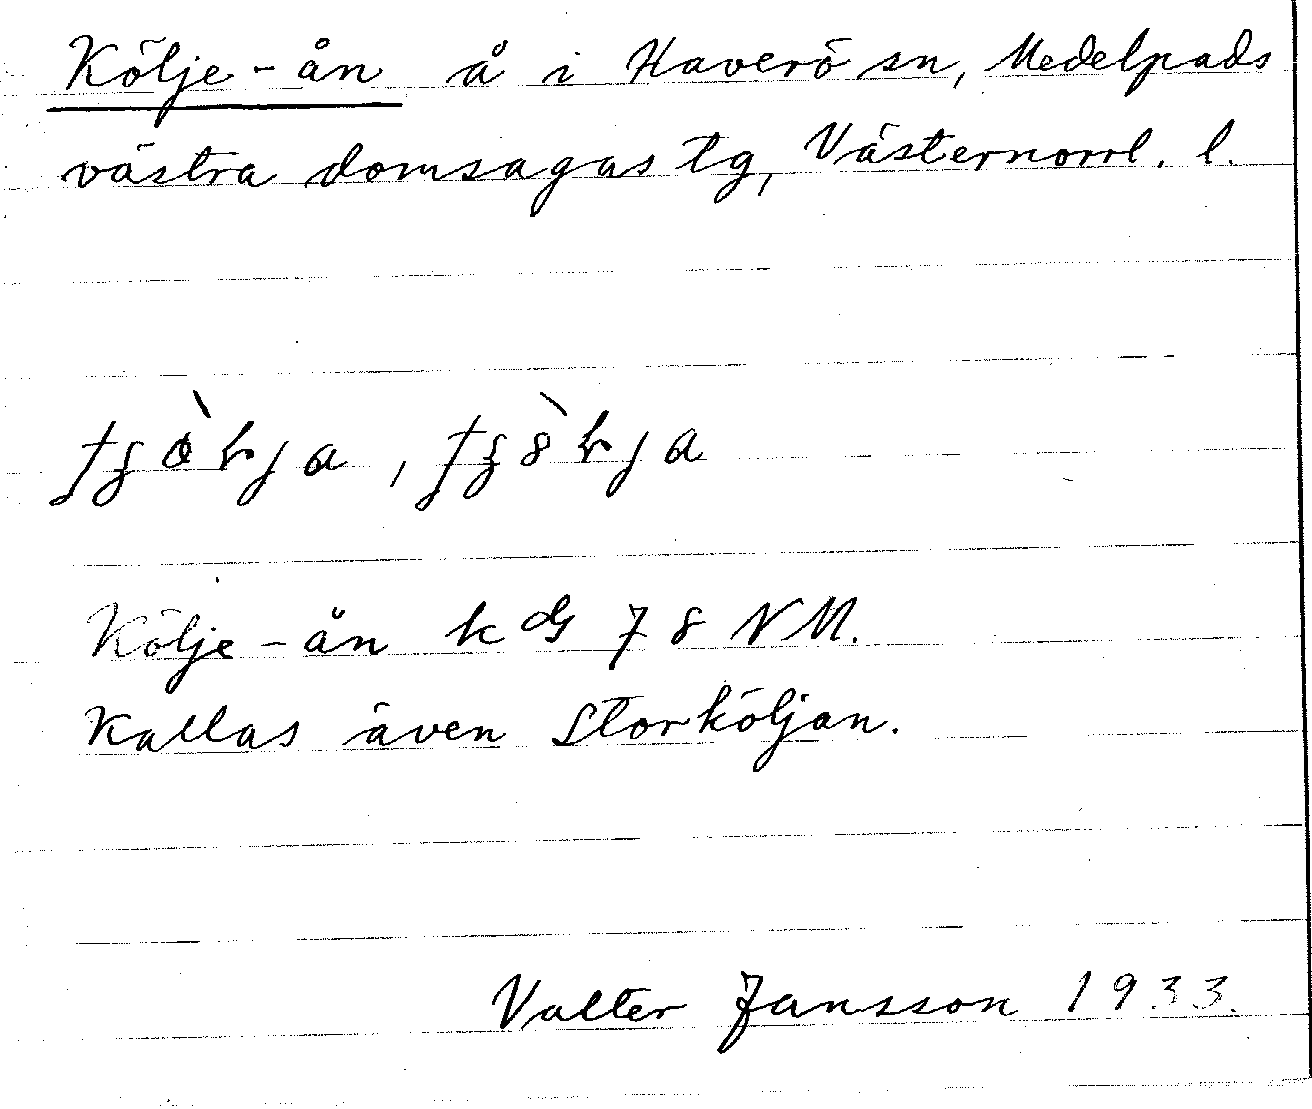 Kölje-ån å i Haverö sn, Medelpads
västra domsagas tg, Västernorrl. l.
Kölje-ån k dG 78 NM.
Kallas även Storköljan.
Valter Jansson 1933.